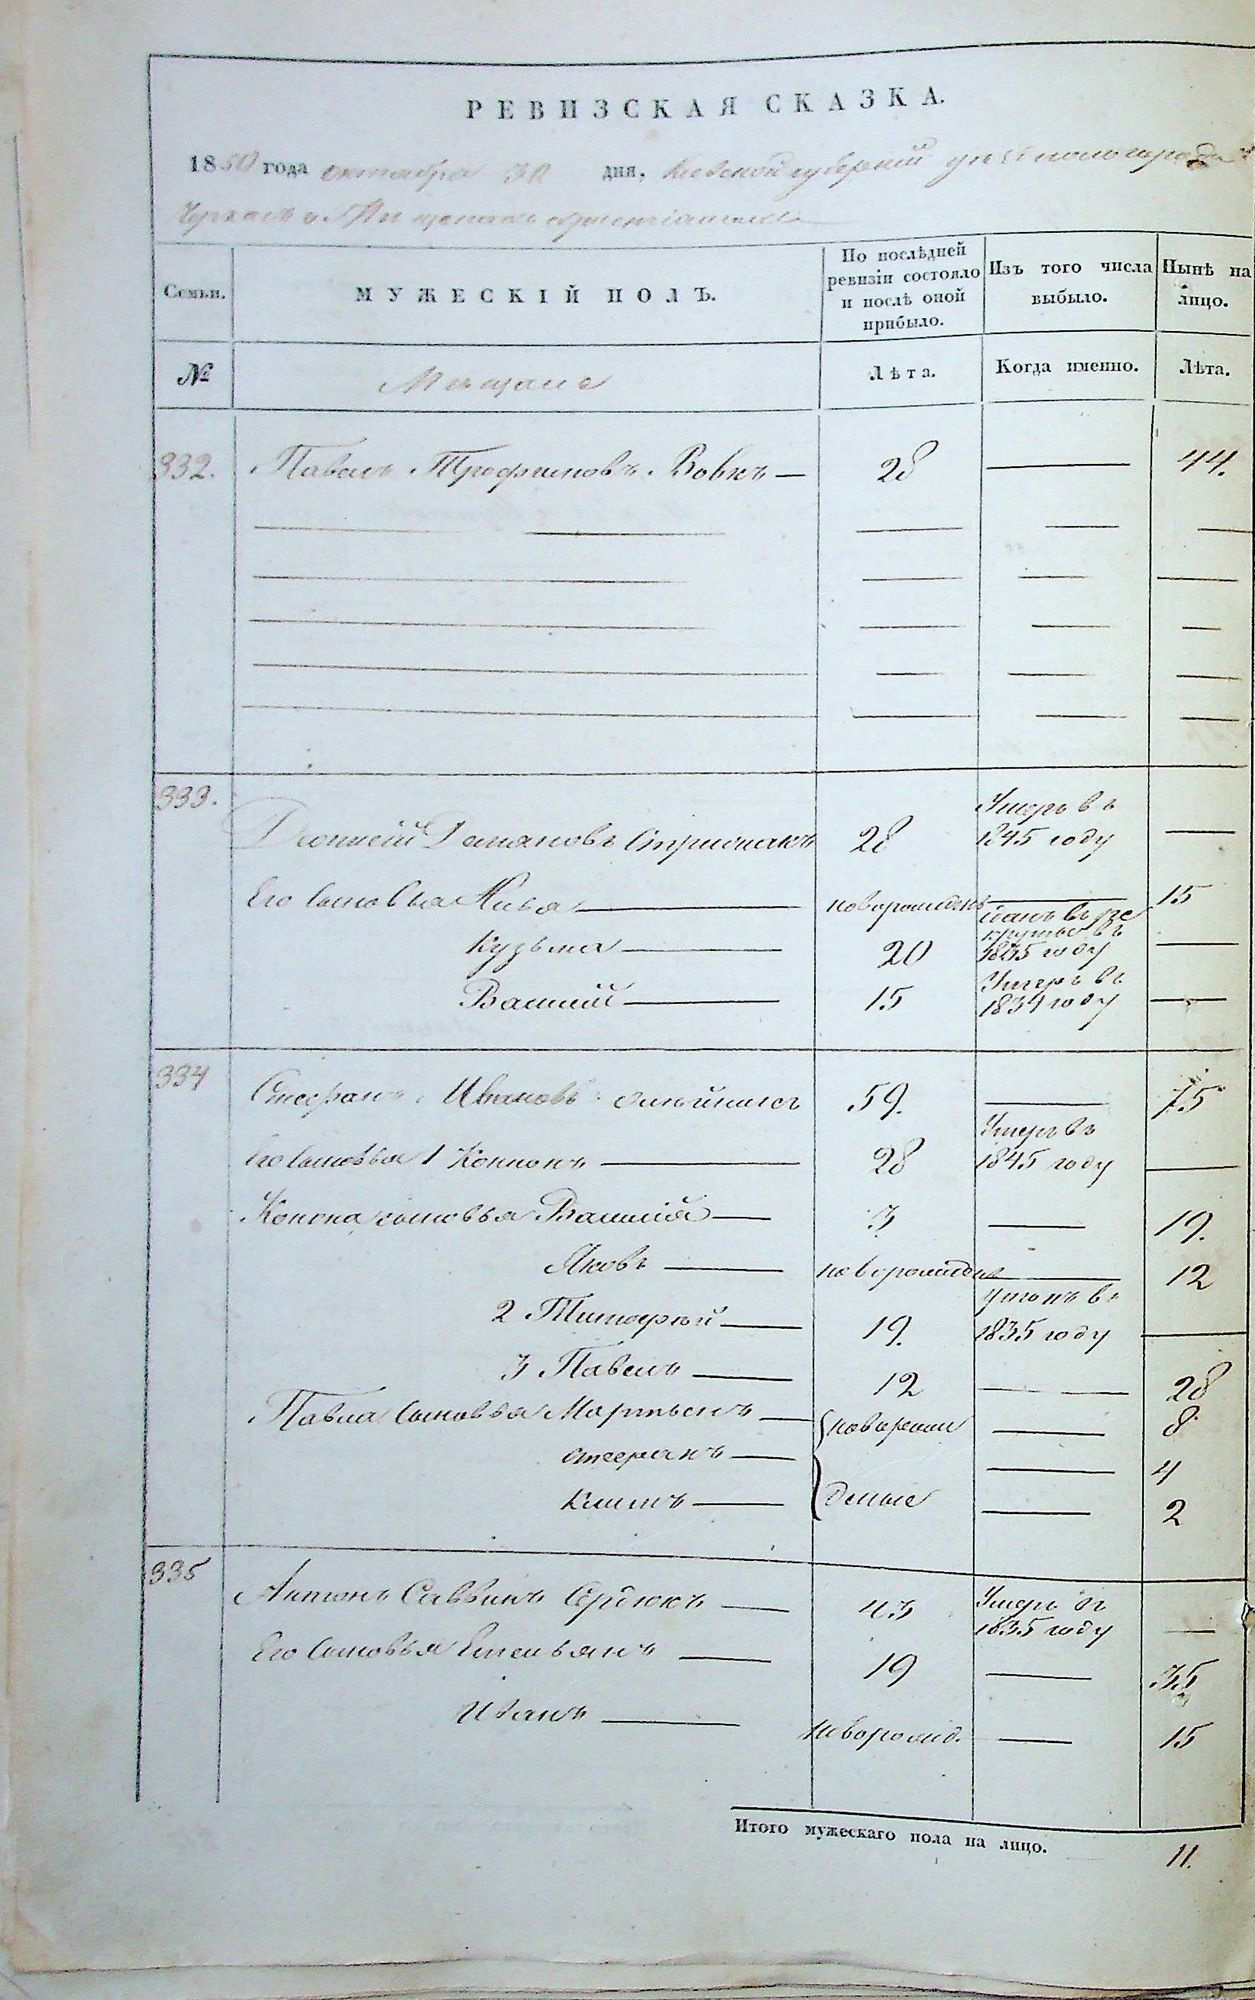 РЕВИЗСКАЯ СКАЗКА.
1850 года октября 30 дня, Кіевской губерніи уѣзднаго города
Черкасъ о Мѣщанахъ христіанахъ
Семьи.
МУЖЕСКІЙ ПОЛЪ.
По послѣдней ревизіи состояло и послѣ оной прибыло.
Изъ того числа выбыло.
Нынѣ на лицо.
№
Мѣщане
Лѣта.
Когда именно.
Лѣта.
332. Павелъ Трофимовъ Вовкъ — 28 — 44.
333.
Діонисій Демяновъ Стрионакъ 28 Умеръ въ 1845 году —
Его сыновья Илья — новорожденъ — 15
Кузьма — 20 сданъ въ рекруты въ 1845 году —
Василій — 15 Умеръ въ 1834 году —
334 Стефанъ Ивановъ Олѣйникъ 59. — 75
Его сыновья 1 Кононъ — 28 Умеръ въ 1845 году —
Конона сыновья Василій — 3 — 19.
Яковъ — новорожден — 12
2 Тимофѣй — 19. 1835 году —
3 Павелъ — 12 — 28
Павла сыновья Мартынъ — новорож — 8
Стефанъ — — 4
Климъ — денные — 2
335
Антонъ Саввинъ Сердюкъ — 43 Умеръ въ 1835 году —
Его сыновья Емельянъ — 19 — 35
Иванъ — новорожд. — 15
Итого мужескаго пола на лицо. 11.